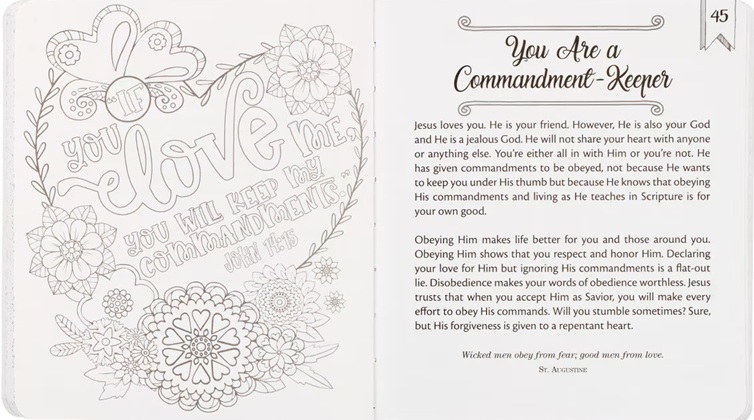 “IF
YOU
love ME,
YOU WILL KEEP MY
COMMANDMENTS.”
JOHN 14:15
45
You Are a
Commandment-Keeper
Jesus loves you. He is your friend. However, He is also your God
and He is a jealous God. He will not share your heart with anyone
or anything else. You’re either all in with Him or you’re not. He
has given commandments to be obeyed, not because He wants
to keep you under His thumb but because He knows that obeying
His commandments and living as He teaches in Scripture is for
your own good.
Obeying Him makes life better for you and those around you.
Obeying Him shows that you respect and honor Him. Declaring
your love for Him but ignoring His commandments is a flat-out
lie. Disobedience makes your words of obedience worthless. Jesus
trusts that when you accept Him as Savior, you will make every
effort to obey His commands. Will you stumble sometimes? Sure,
but His forgiveness is given to a repentant heart.
Wicked men obey from fear; good men from love.
St. Augustine